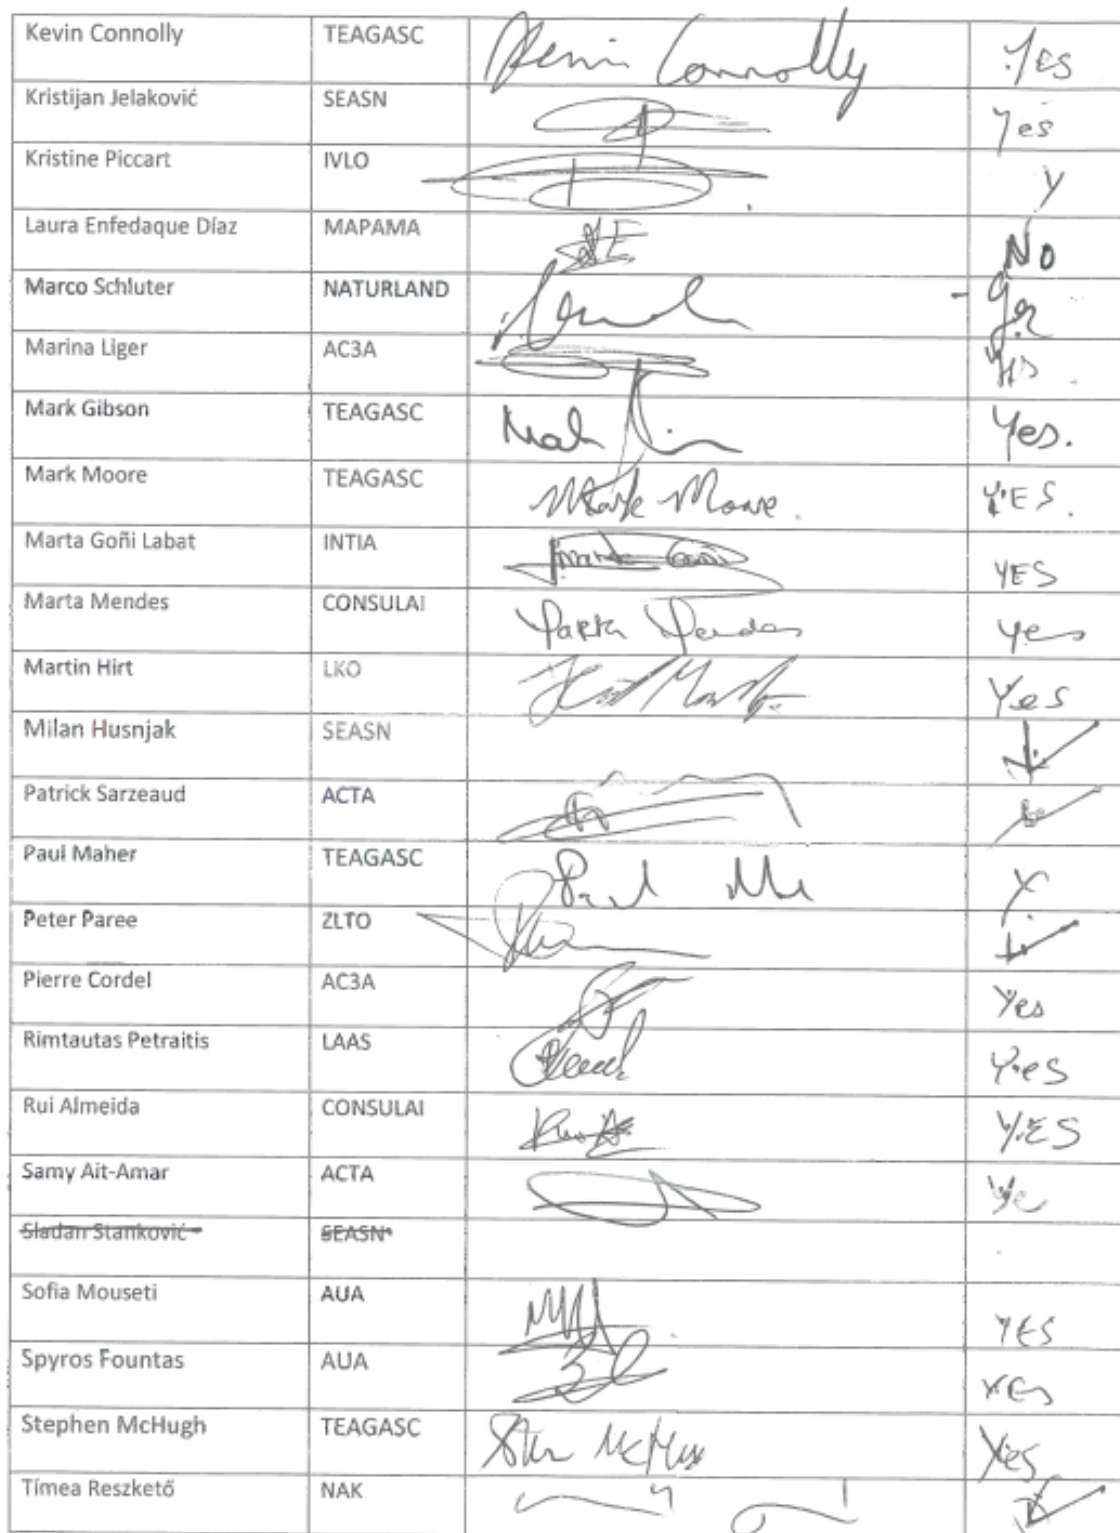 Kevin Connolly TEAGASC Kevin Connolly Yes
Kristijan Jelaković SEASN Yes
Kristine Piccart IVLO Y
Laura Enfedaque Díaz MAPAMA No
Marco Schluter NATURLAND
Marina Liger AC3A
Mark Gibson TEAGASC Yes.
Mark Moore TEAGASC Mark Moore. YES.
Marta Goñi Labat INTIA YES
Marta Mendes CONSULAI Marta Mendes yes
Martin Hirt LKO Yes
Milan Husnjak SEASN
Patrick Sarzeaud ACTA
Paul Maher TEAGASC Y.
Peter Paree ZLTO
Pierre Cordel AC3A Yes
Rimtautas Petraitis LAAS Yes
Rui Almeida CONSULAI YES
Samy Ait-Amar ACTA
Sladan Stanković SEASN
Sofia Mouseti AUA YES
Spyros Fountas AUA YES
Stephen McHugh TEAGASC Yes
Tímea Reszkető NAK